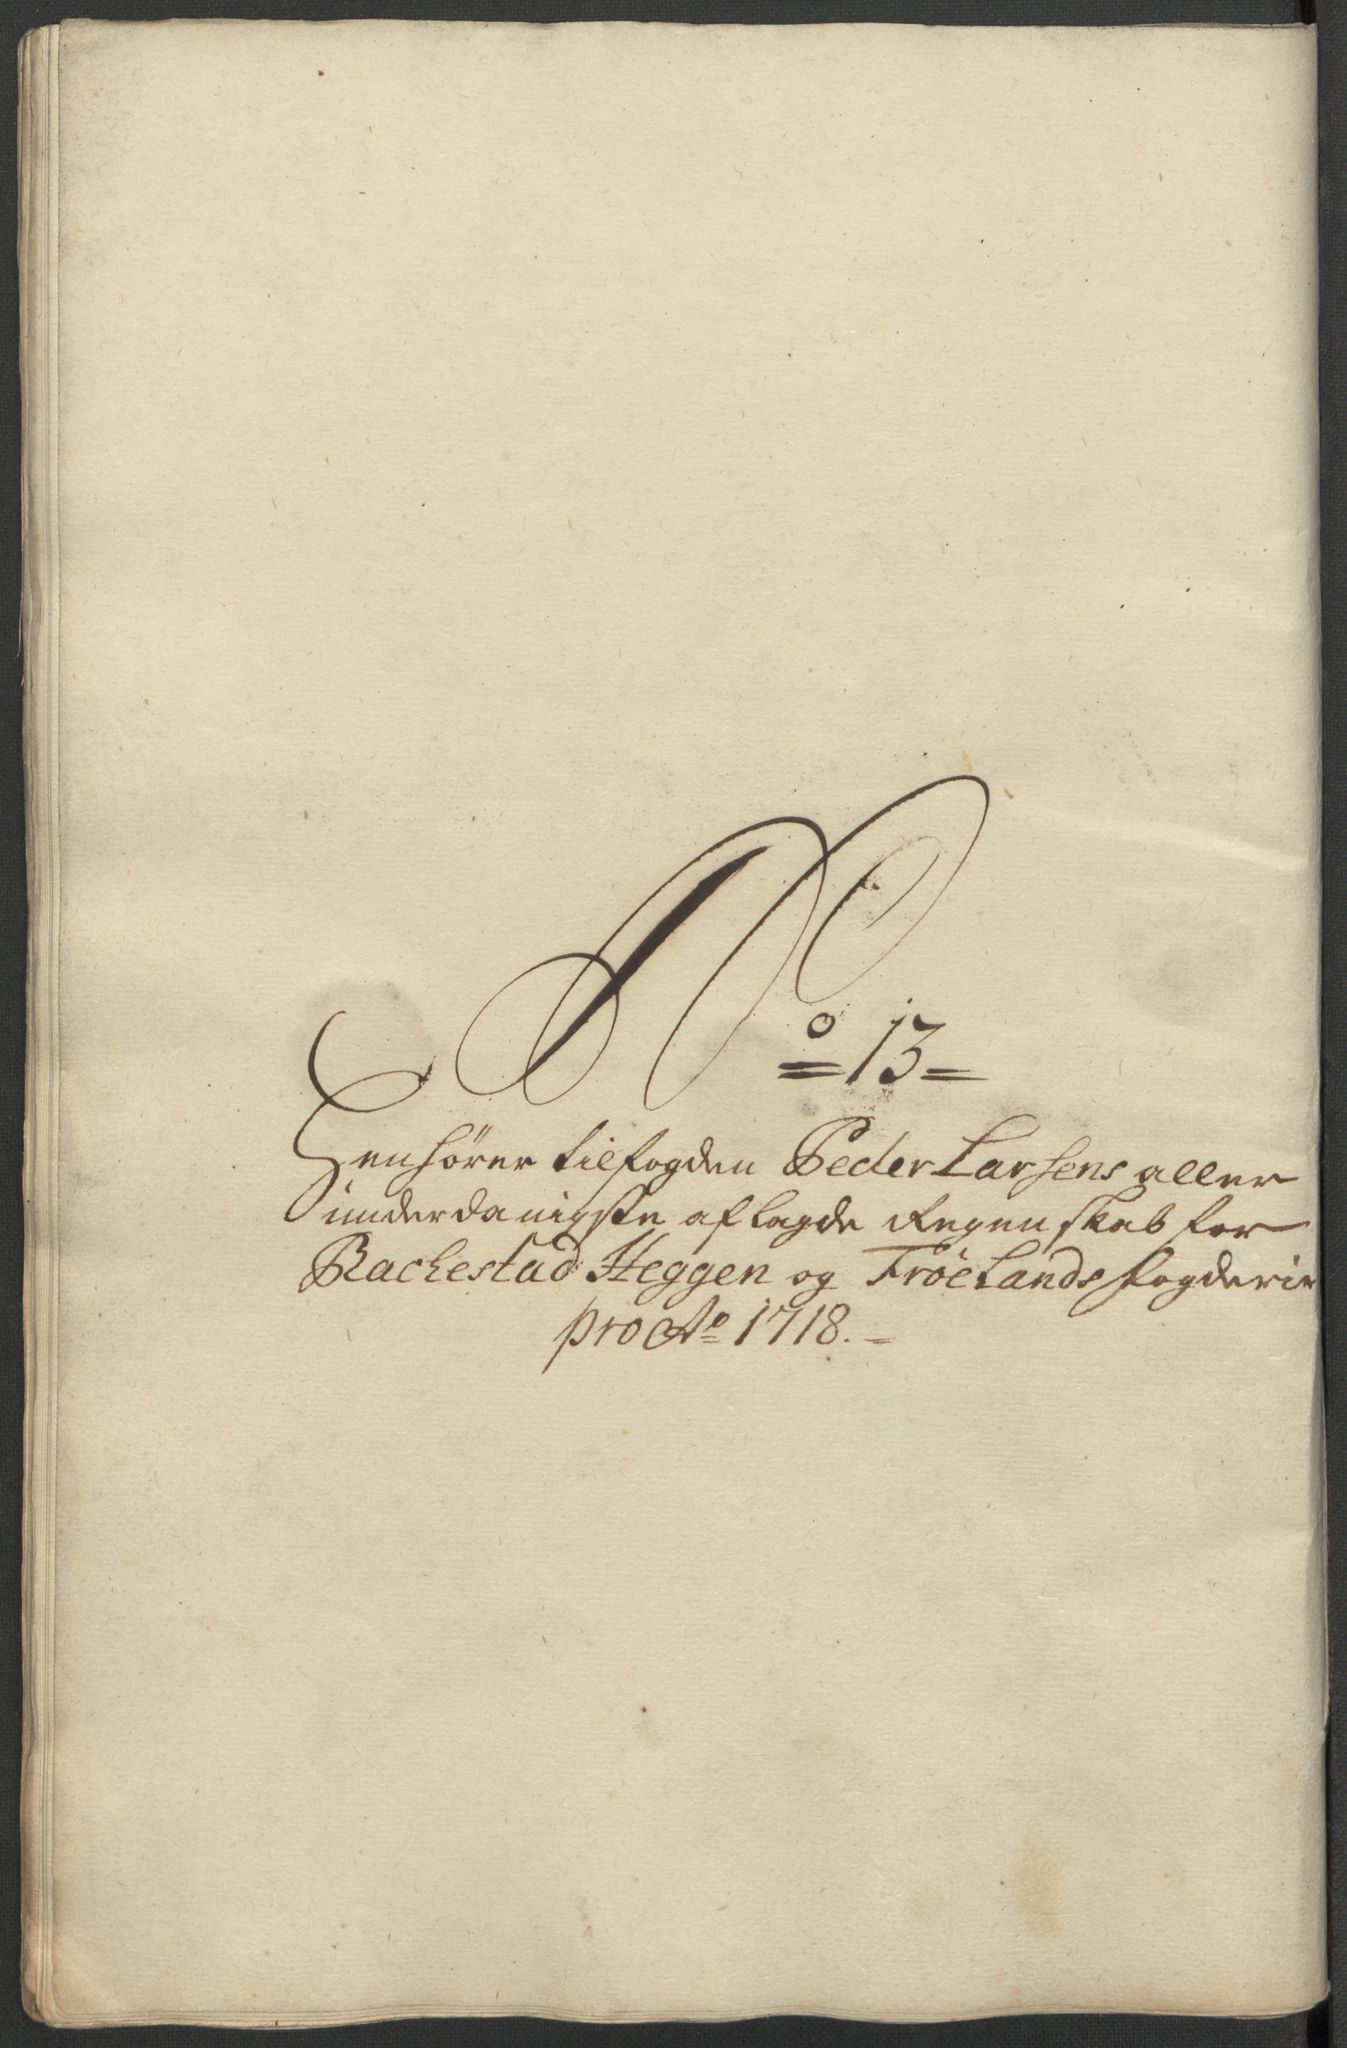 No 13
Henhører til fogden Peder Larsens aller
underdanigste aflagde Regenskab for
Rachestad Heggen og Frøelands fogderie
pro Ao 1718.